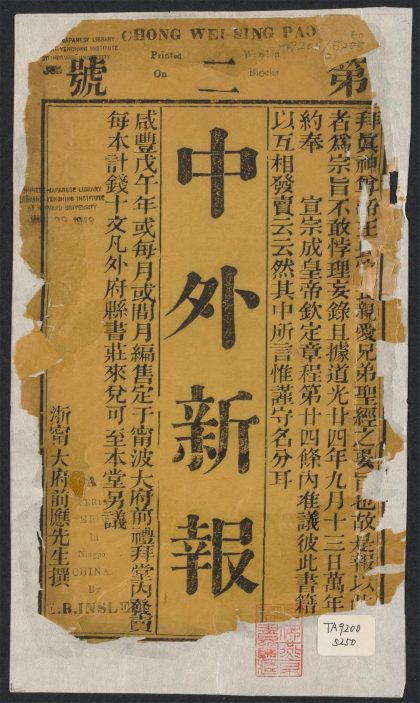 CHONG WEI SING PAO
Printed Wooden
On Blocks
第二號
拜眞神
親愛兄弟聖經之要旨也故是報以
者爲宗旨不敢悖理妄錄且據道光廿四年九月十三日萬年
約奉 宣宗成皇帝欽定章程第廿四條內准議彼此書籍
以互相發賣云云然其中所言惟謹守名分耳
中外新報
咸豐戊午年或每月或間月編售定于甯波大府前禮拜堂內發賣
每本計錢十文凡外府縣書莊來兌可至本堂另議
浙甯大府前應先生撰
A
In
Ningpo
CHINA.
By
E.B.INSLE
JAPANESE LIBRARY
YENCHING INSTITUTE
CHINESE-JAPANESE LIBRARY
HARVARD-YENCHING INSTITUTE
HARVARD UNIVERSITY
TA9200
5250